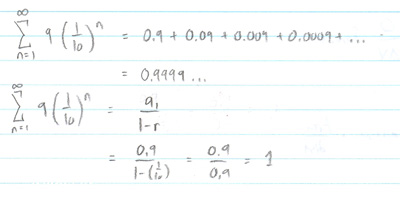 ∞
∑ 9 (1/10)^n = 0.9 + 0.09 + 0.009 + 0.0009 + ...
n=1
= 0.9999...
∞
∑ 9 (1/10)^n = a₁/(1-r)
n=1
= 0.9/(1-(1/10)) = 0.9/0.9 = 1